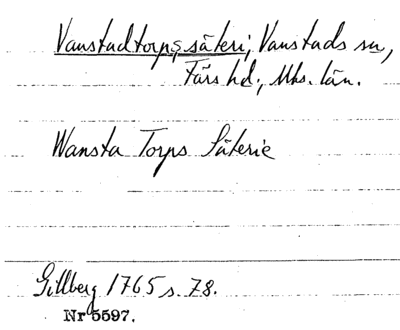 Vanstadtorps säteri, Vanstads sn,
Färs hd, Mhs. län.
Wansta Torps Säterie
Gillberg 1765 s. 78.
Nr 5597.